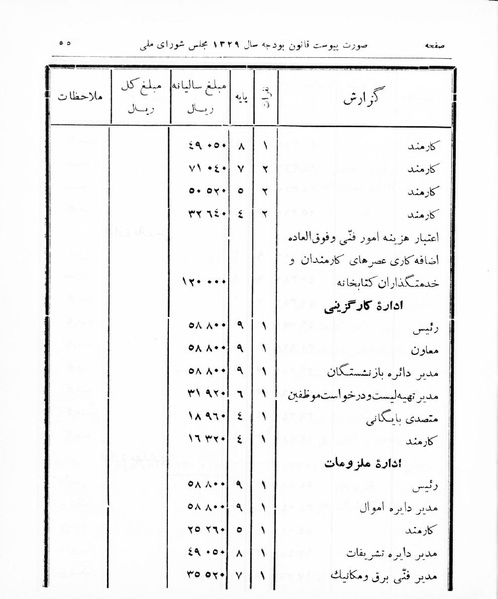 صفحه صورت پیوست قانون بودجه سال ۱۳۲۹ مجلس شورای ملی ۵۵
گزارش نفرات پایه مبلغ سالیانه ریال مبلغ کل ریال ملاحظات
کارمند ۱ ۸ ۴۹۰۵۰
کارمند ۲ ۷ ۷۱۰۴۰
کارمند ۲ ۵ ۵۰۵۲۰
کارمند ۲ ۴ ۳۲۶۴۰
اعتبار هزینه امور فنّی وفوق‌العاده
اضافه کاری عصرهای کارمندان و
خدمتگذاران کتابخانه ۱۲۰۰۰۰
ادارهٔ کارگزینی
رئیس ۱ ۹ ۵۸۸۰۰
معاون ۱ ۹ ۵۸۸۰۰
مدیر دائره بازنشستگان ۱ ۹ ۵۸۸۰۰
مدیر تهیه لیست ودرخواست موظفین ۱ ۶ ۳۱۹۲۰
متصدی بایگانی ۱ ۴ ۱۸۹۶۰
کارمند ۱ ۴ ۱۶۳۲۰
ادارهٔ ملزومات
رئیس ۱ ۹ ۵۸۸۰۰
مدیر دایره اموال ۱ ۹ ۵۸۸۰۰
کارمند ۱ ۵ ۲۵۲۶۰
مدیر دایره تشریفات ۱ ۸ ۴۹۰۵۰
مدیر فنّی برق ومکانیك ۱ ۷ ۳۵۵۲۰